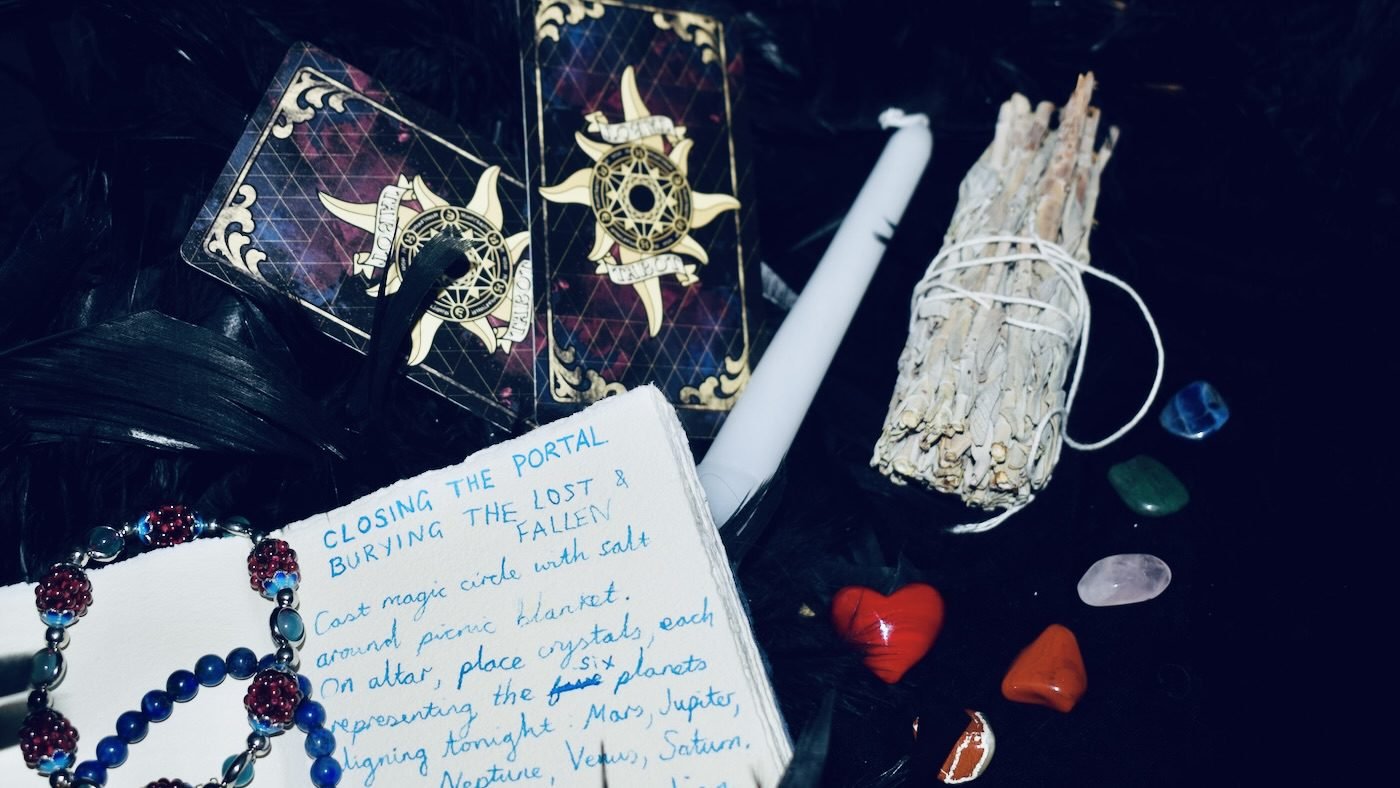 TAROT
TAROT
TAROT
TAROT
CLOSING THE PORTAL
BURYING THE LOST &
FALLEN
Cast magic circle with salt
around picnic blanket.
On altar, place crystals, each
six
representing the five planets
ligning tonight: Mars, Jupiter,
Neptune, Venus, Saturn.